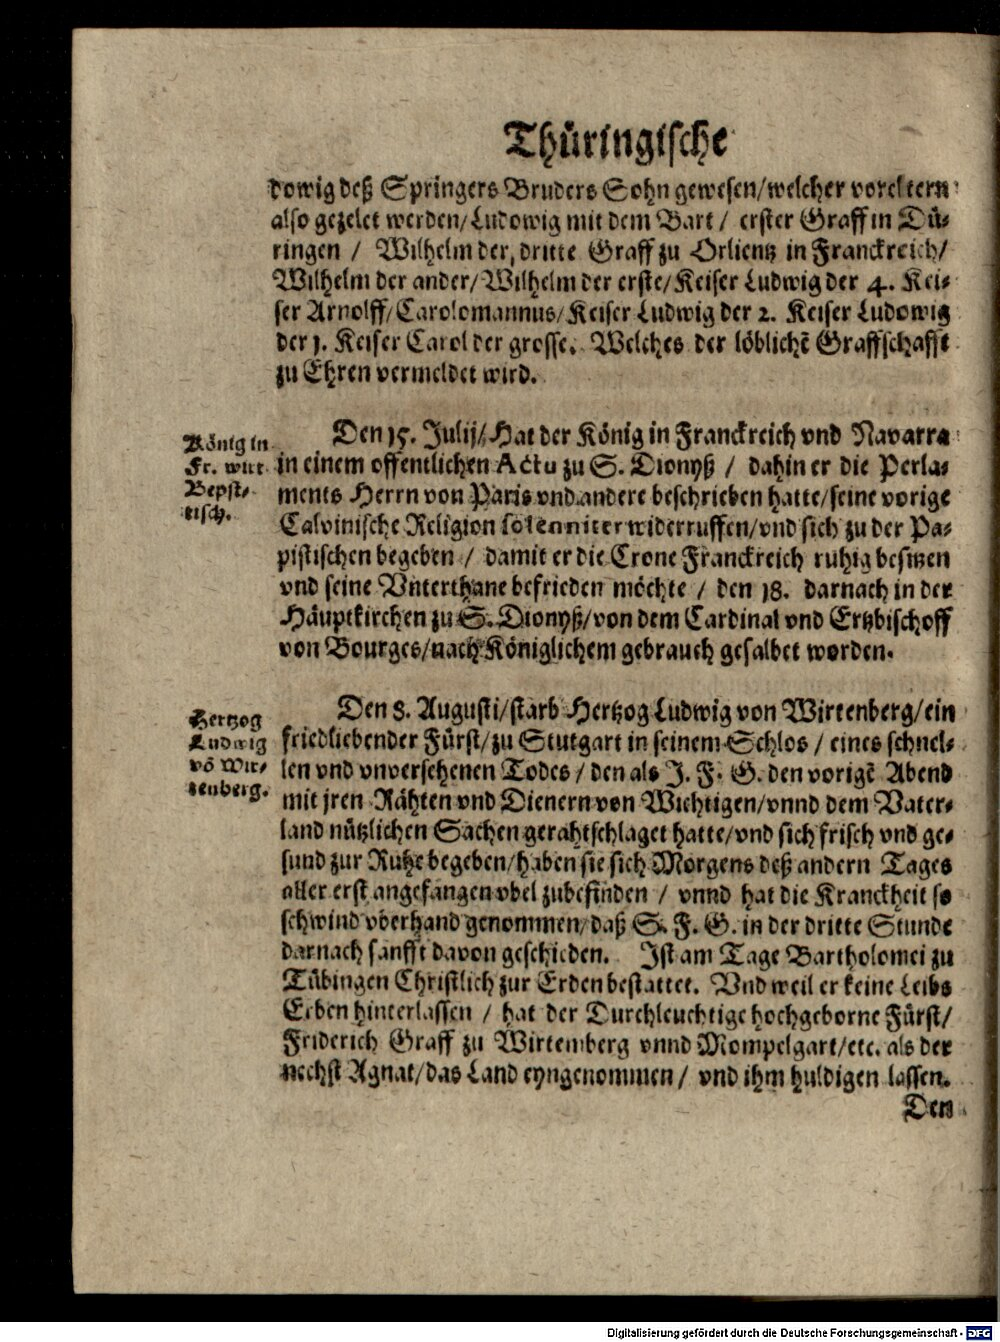 Thüringische
dowig deß Springers Bruders Sohn gewesen/welcher voreltern
also gezelet werden/Ludowig mit dem Bart / erster Graff in Dü-
ringen / Wilhelm der dritte Graff zu Orlientz in Franckreich/
Wilhelm der ander/Wilhelm der erste/Keiser Ludwig der 4. Kei-
ser Arnolff/Carolomannus/Keiser Ludwig der 2. Keiser Ludowig
der 1. Keiser Carol der grosse. Welches der löblichẽ Graffschafft
zu Ehren vermeldet wird.
König in
Fr. wirt
Bepst-
tisch.
Den 15. Julij/Hat der König in Franckreich vnd Navarra
in einem offentlichen Actu zu S. Dionyß / dahin er die Perla-
ments Herrn von Paris vnd andere beschrieben hatte/seine vorige
Calvinische Religion solenniter widerruffen/vnd sich zu der Pa-
pistischen begeben / damit er die Crone Franckreich ruhig besitzen
vnd seine Vnterthane befrieden möchte / den 18. darnach in der
Häuptkirchen zu S. Dionyß/von dem Cardinal vnd Ertzbischoff
von Bourges/nach Königlichem gebrauch gesalbet worden.
Hertzog
Ludwig
võ Wir-
tenberg.
Den 8. Augusti/starb Hertzog Ludwig von Wirtenberg/ein
friedliebender Fürst/zu Stutgart in seinem Schlos / eines schnel-
len vnd vnversehenen Todes / den als J. F. G. den vorigẽ Abend
mit jren Rähten vnd Dienern von Wichtigen/vnnd dem Vater-
land nützlichen Sachen gerahtschlaget hatte/vnd sich frisch vnd ge-
sund zur Ruhe begeben/haben sie sich Morgens deß andern Tages
aller erst angefangen vbel zubefinden / vnnd hat die Kranckheit so
schwind vberhand genommen/daß S. F. G. in der dritte Stunde
darnach sanfft davon geschieden. Ist am Tage Bartholomei zu
Tübingen Christlich zur Erden bestattet. Vnd weil er keine Leibs
Erben hinterlassen / hat der Durchleuchtige hochgeborne Fürst/
Friderich Graff zu Wirtemberg vnnd Mompelgart/etc. als der
nechst Agnat/das Land eyngenommen / vnd ihm huldigen lassen.
Den
Digitalisierung gefördert durch die Deutsche Forschungsgemeinschaft - DFG